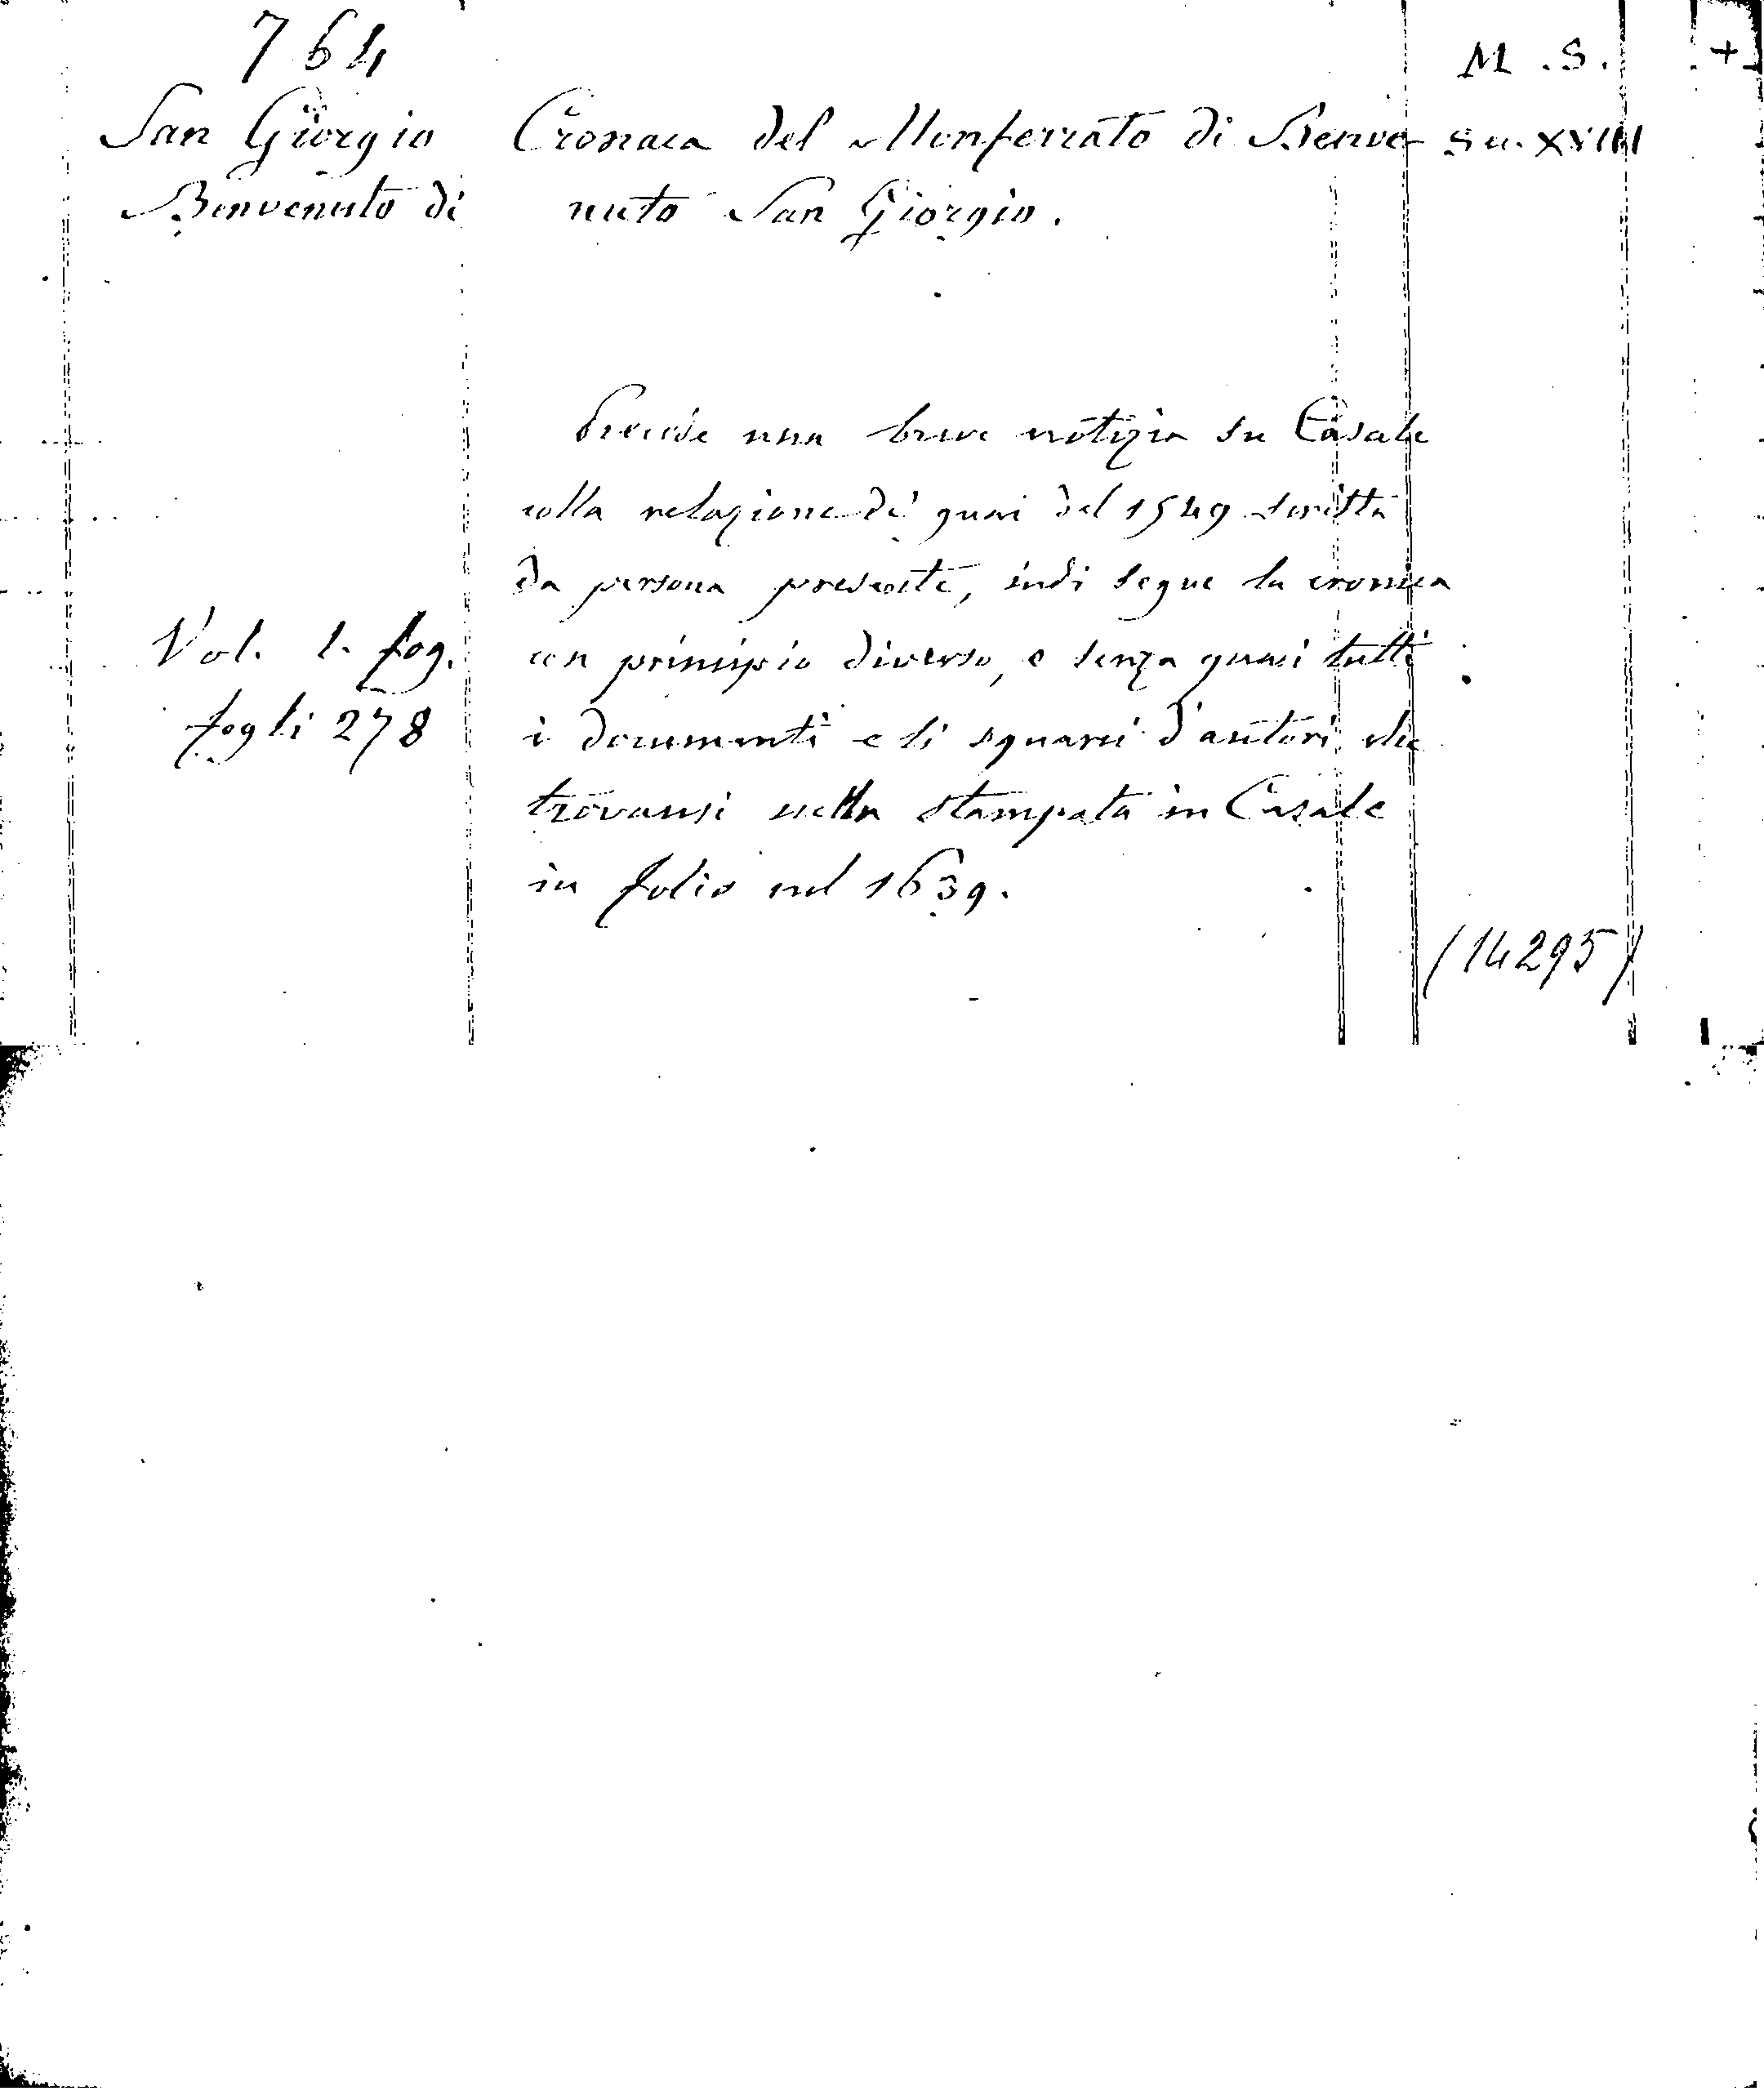 764
M. S. +
San Giorgio
Benvenuto di
Cronaca del Monferrato di Benve-
nuto San Giorgio.
Sec. XVIII
Precede una breve notizia su Casale
colla relazione de' guai del 1549 scritta
da persona presente, indi segue la cronica
con principio diverso, e senza quasi tutti
i documenti e li squarci d'autori che
trovansi nella stampata in Casale
in folio nel 1639.
Vol. 1. fog.
fogli 278
(14295)